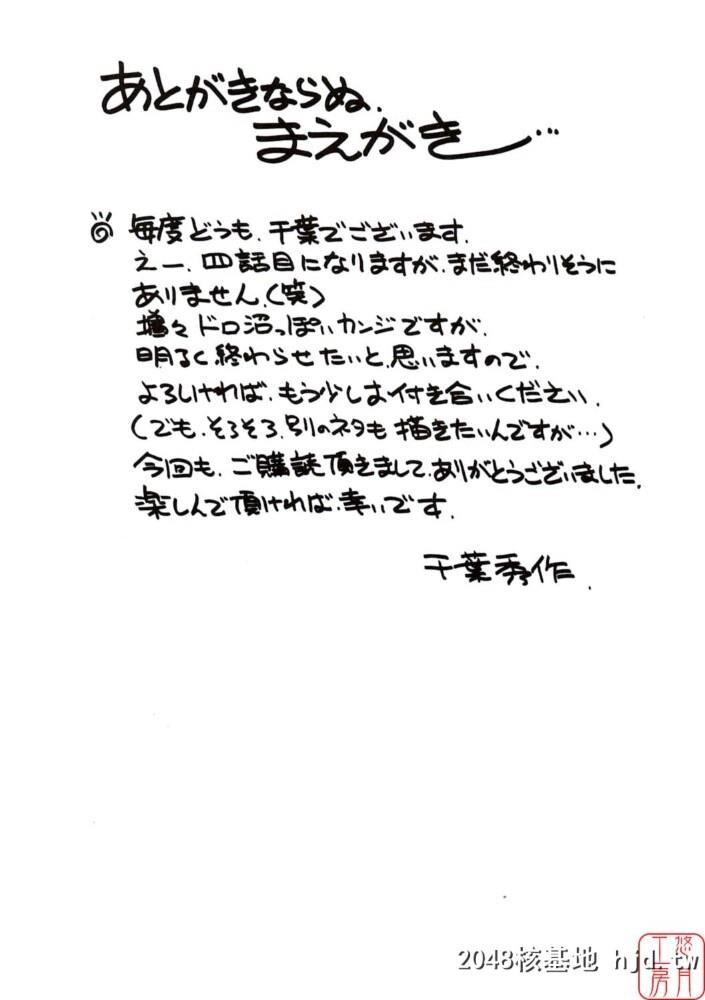 あとがきならぬ、
まえがき…
毎度どうも、千葉でございます。
えー、四話目になりますが、まだ終わりそうに
ありません。(笑)
増々ドロ沼っぽいカンジですが、
明るく終わらせたいと、思いますので、
よろしければ、もう少しお付き合いください。
(でも、そろそろ、別のネタも描きたいんですが…)
今回も、ご購読頂きまして、ありがとうございました。
楽しんで頂ければ、幸いです。
千葉秀作.
悠月工房
2048核基地 hjd.tw